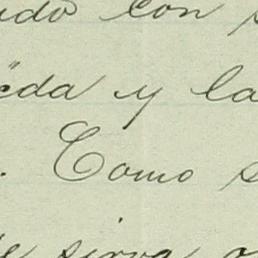 ido con s
eda y la
. Como s
sirva